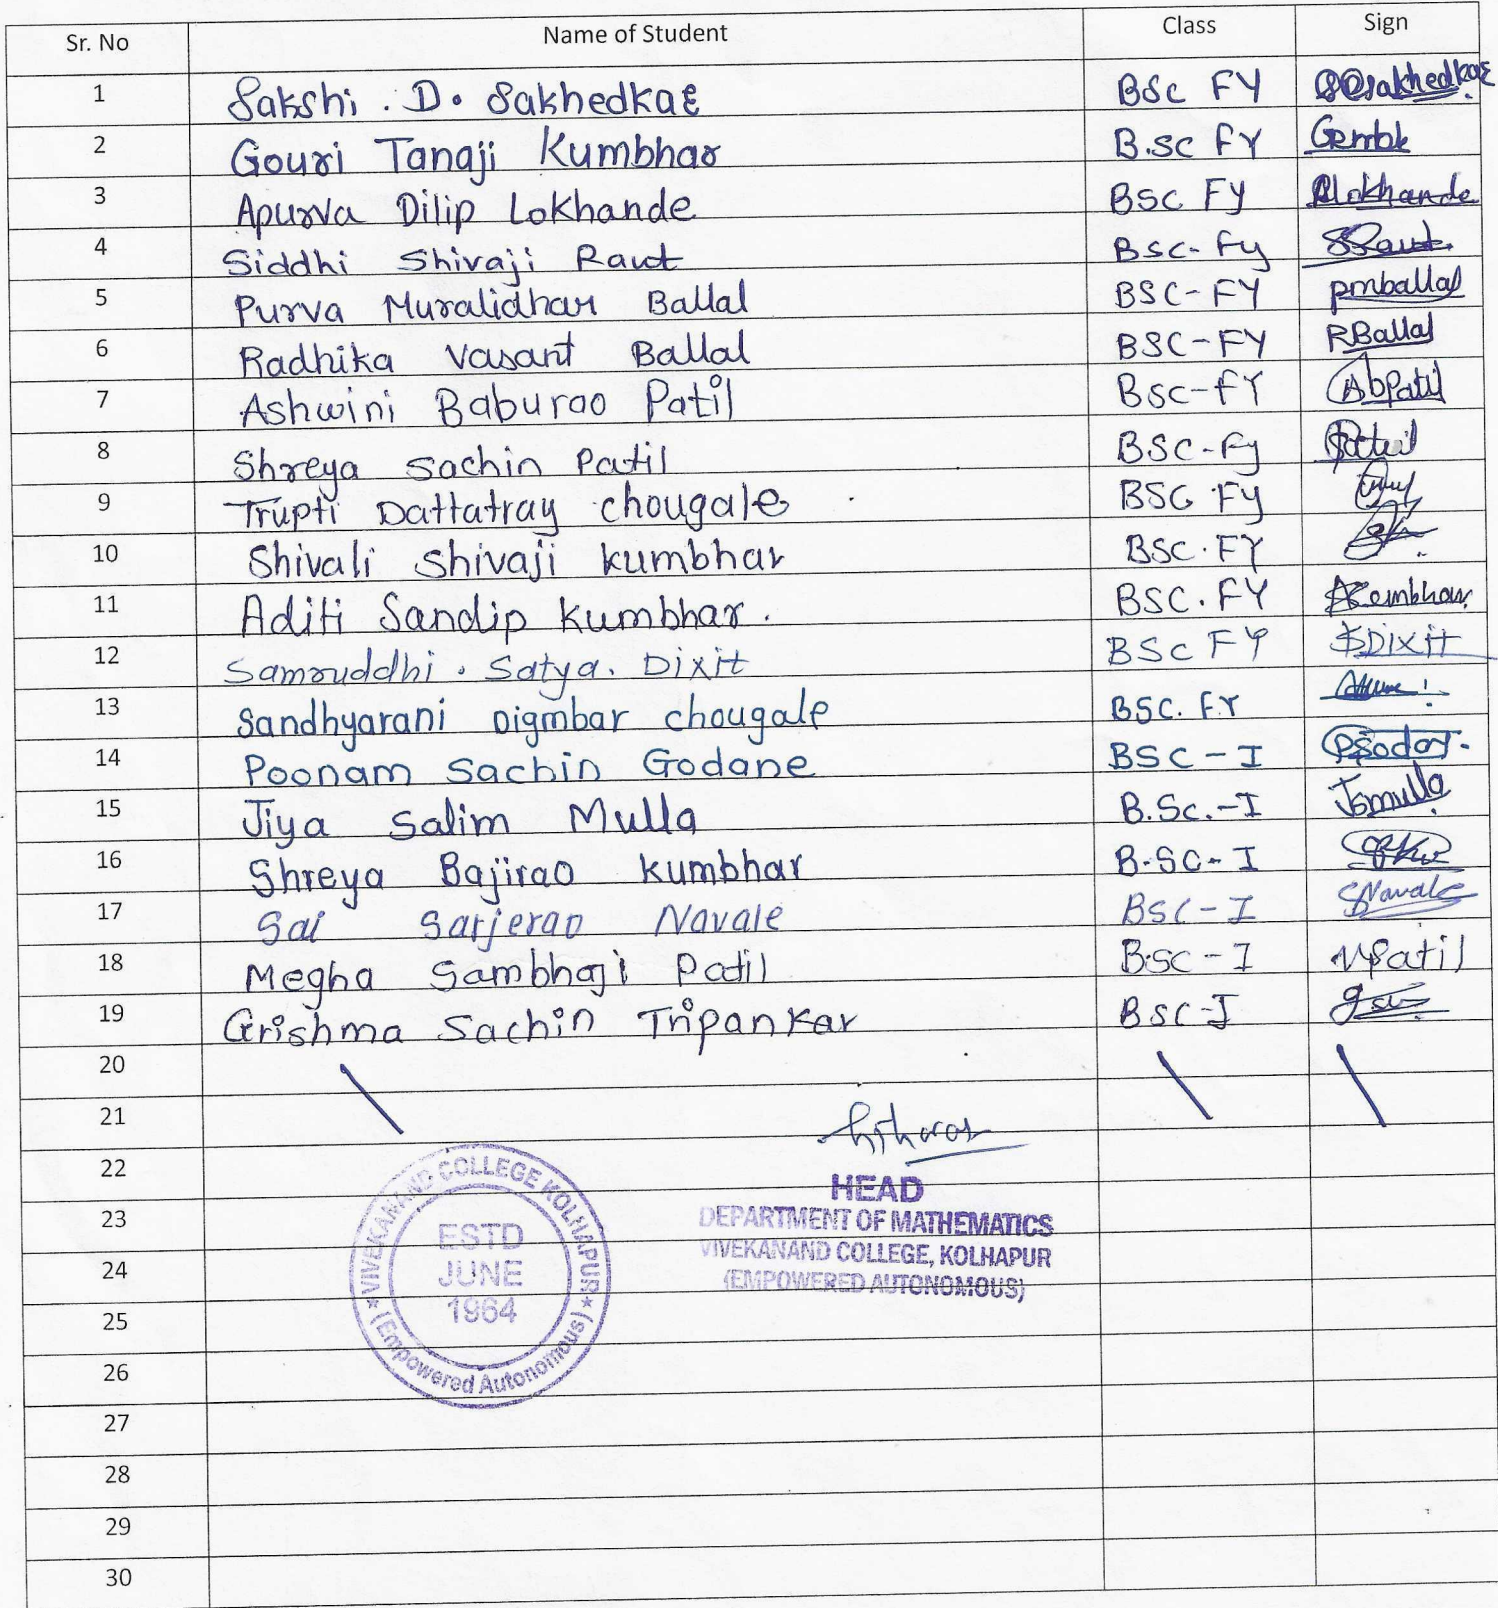 Sr. No Name of Student Class Sign
1 Sakshi . D. Sakhedkar BSc FY SDSakhedkar
2 Gouri Tanaji Kumbhar B.sc FY
3 Apurva Dilip Lokhande BSC FY ALokhande
4 Siddhi Shivaji Raut BSC-Fy SRaut
5 Purva Muralidhar Ballal BSC-FY pmballal
6 Radhika Vasant Ballal BSC-FY RBallal
7 Ashwini Baburao Patil BSC-fY AbPatil
8 Shreya Sachin Patil BSC-Fy SPatil
9 Trupti Dattatray chougale BSC FY
10 Shivali Shivaji kumbhar BSC.FY
11 Aditi Sandip kumbhar. BSC.FY AKumbhar
12 Samruddhi . Satya. Dixit BSc FY SDixit
13 Sandhyarani Digmbar chougale BSC. F.Y
14 Poonam Sachin Godane BSC-I
15 Jiya Salim Mulla B.Sc.-I Jsmulla
16 Shreya Bajirao kumbhar B.SC-I
17 Sai Sarjerao Navale BSC-I SNavale
18 Megha Sambhaji Patil B.SC-I MPatil
19 Grishma Sachin Tripankar BSC-I
20
21
22
23
24
25
26
27
28
29
30
VIVEKANAND COLLEGE KOLHAPUR
(Empowered Autonomous)
ESTD
JUNE
1964
HEAD
DEPARTMENT OF MATHEMATICS
VIVEKANAND COLLEGE, KOLHAPUR
(EMPOWERED AUTONOMOUS)